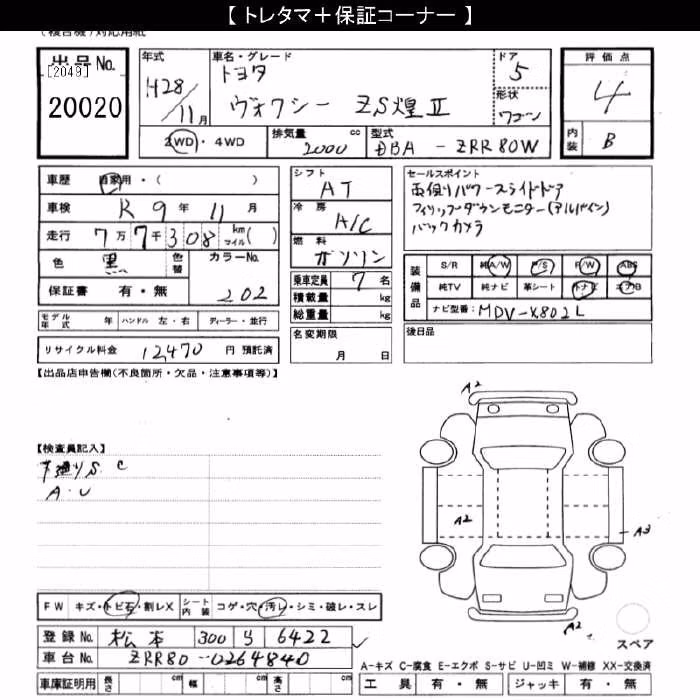 【 トレタマ＋保証コーナー 】
(複合機)対応用紙
出品No.
[2049]
20020
年式 H28/11月
車名・グレード
トヨタ
ヴォクシー ZS煌Ⅱ
ドア 5
形状 ワゴン
評価点
4
内装 B
2WD・4WD
排気量 2000 cc
型式 DBA - ZRR80W
車歴 自家用・( )
車検 R 9年 11月
走行 7万7千308 km マイル( )
色 黒 色替 カラーNo.
保証書 有・無 202
モデル年式 年 ハンドル 左・右 ディーラー・並行
リサイクル料金 12,470 円 預託済
シフト AT
冷房 A/C
燃料 ガソリン
乗車定員 7名
積載量 kg
総重量 kg
名変期限
月 日
セールスポイント
両側パワースライドドア
フィリップダウンモニター(アルパイン)
バックカメラ
装備品
S/R 純A/W P/S P/W ABS
純TV 純ナビ 革シート トナビ エアB
ナビ型番: MDV-X802L
後日品
【出品店申告欄(不良箇所・欠品・注意事項等)】
【検査員記入】
下廻りS C
A・U
A2
A2
A3
A2
スペア
FW キズ・トビ石・割レX シート内装 コゲ・穴・汚レ・シミ・破レ・スレ
登録No. 松本 300 ら 6422
車台No. ZRR80-0264840
車庫証明用 長さ cm 幅 cm 高さ cm
A-キズ C-腐食 E-エクボ S-サビ U-凹ミ W-補修 XX-交換済
工具 有・無 ジャッキ 有・無